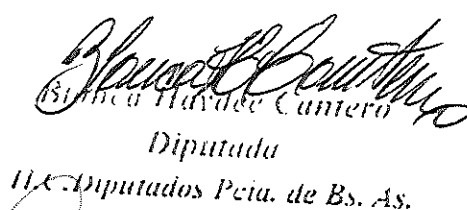 Blanca Haydee Cantero
Diputada
H.C. Diputados Pcia. de Bs. As.